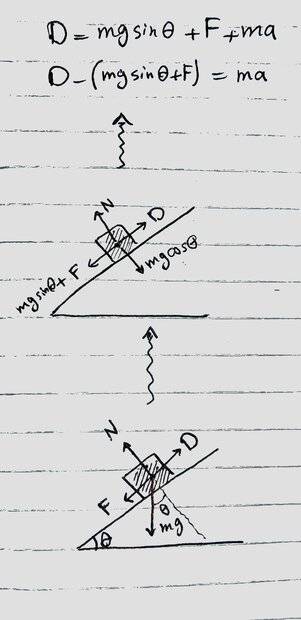 D = mg sinθ + F + ma
D - (mg sinθ + F) = ma
N
D
mg sinθ + F
mg cosθ
N
D
F
θ
mg
θ